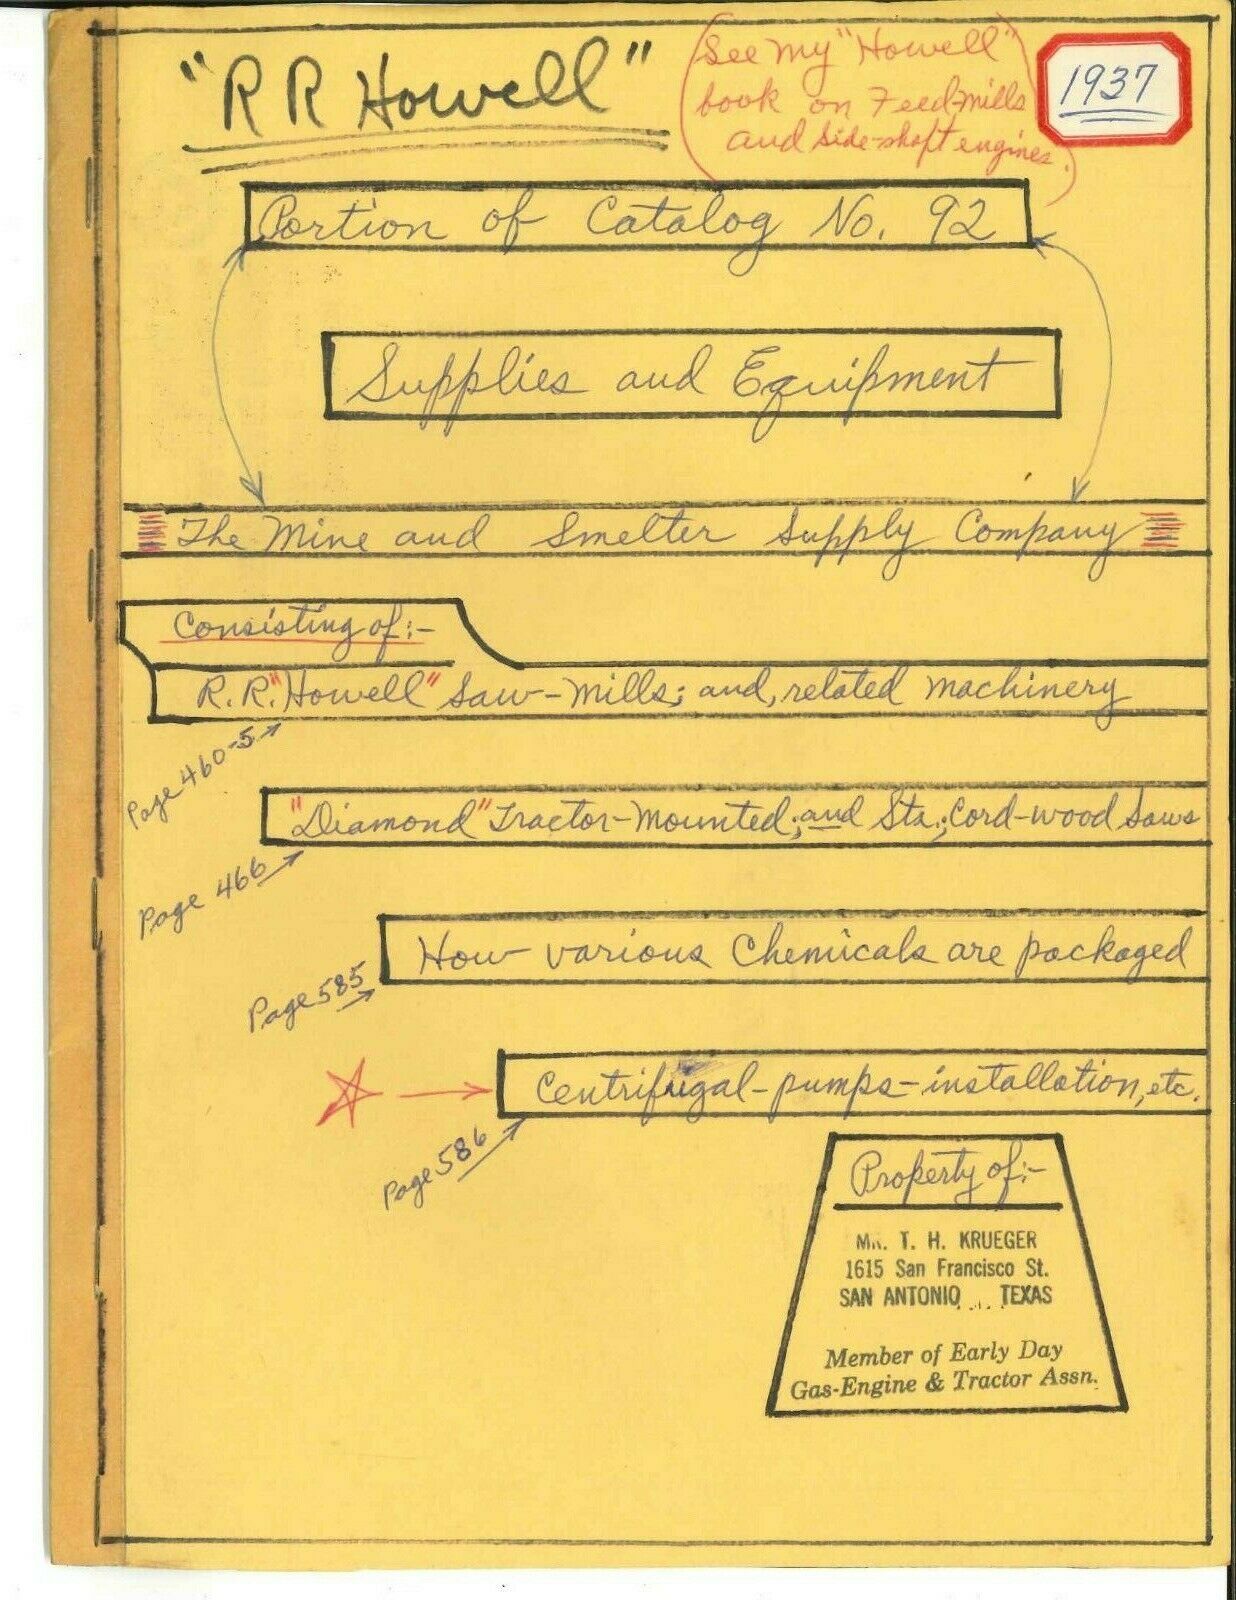 "R R Howell"
(See my "Howell"
book on Feed-mills
and side-shaft engines.)
1937
Portion of Catalog No. 92
Supplies and Equipment
The Mine and Smelter Supply Company
Consisting of:-
R.R. "Howell" Saw-Mills; and, related machinery
Page 460-5
"Diamond" Tractor-Mounted; and Sta.; Cord-wood Saws
Page 466
How various Chemicals are packaged
Page 585
Centrifugal-pumps-installation, etc.
Page 586
Property of:-
MR. T. H. KRUEGER
1615 San Francisco St.
SAN ANTONIO, TEXAS
Member of Early Day
Gas-Engine & Tractor Assn.